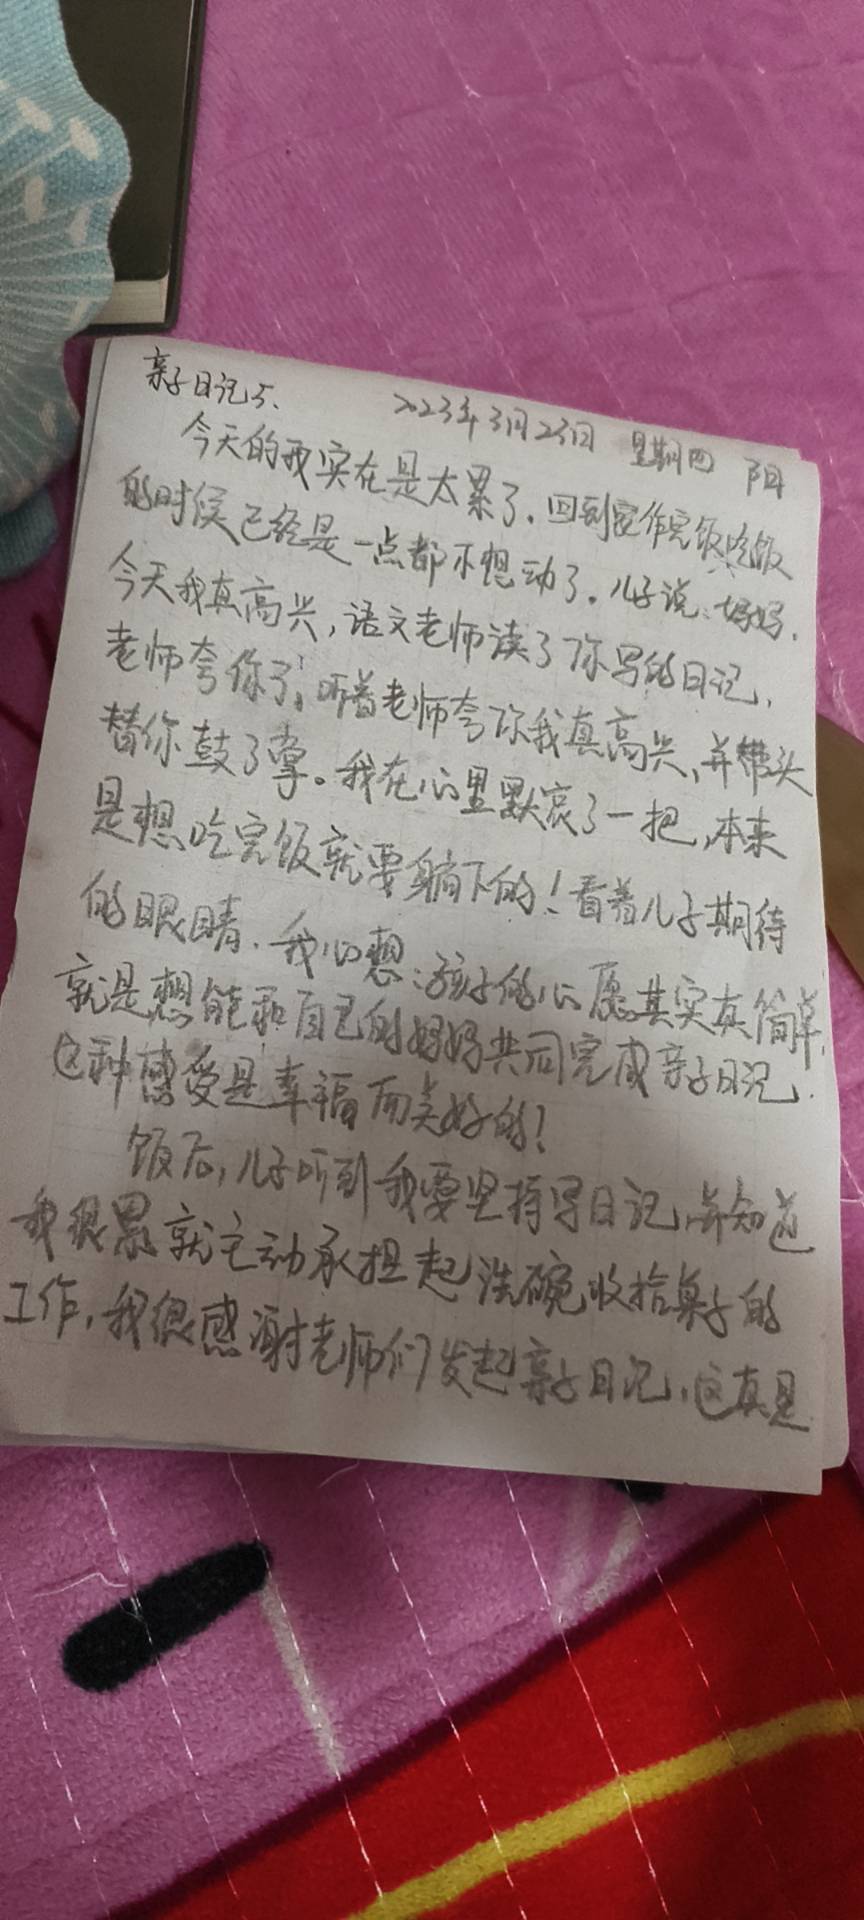 亲子日记5.
2023年3月23日 星期四 阴
今天的我实在是太累了.回到家作完饭吃饭
的时候已经是一点都不想动了.儿子说:妈妈.
今天我真高兴,语文老师读了你写的日记,
老师夸你了,听着老师夸你我真高兴,并带头
替你鼓了掌。我在心里默哀了一把,本来
是想吃完饭就要躺下的!看着儿子期待
的眼睛.我心想:孩子的心愿其实真简单,
就是想能和自己的妈妈共同完成亲子日记.
这种感受是幸福而美好的!
饭后,儿子听到我要坚持写日记,并知道
我很累就主动承担起洗碗收拾桌子的
工作,我很感谢老师们发起亲子日记,这真是